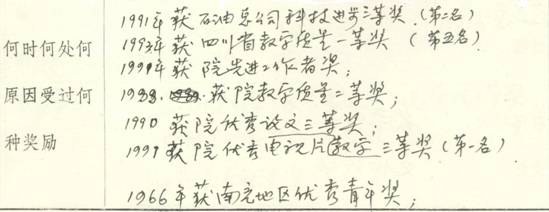 何时何处何
原因受过何
种奖励
1991年获石油总公司科技进步三等奖(第二名)
1993年获四川省教学质量一等奖(第五名)
1991年获院先进工作者奖;
1988.获院教学质量二等奖;
1990获院优秀论文三等奖;
1991获院优秀电视片教学三等奖(第一名)
1966年获南充地区优秀青年奖;